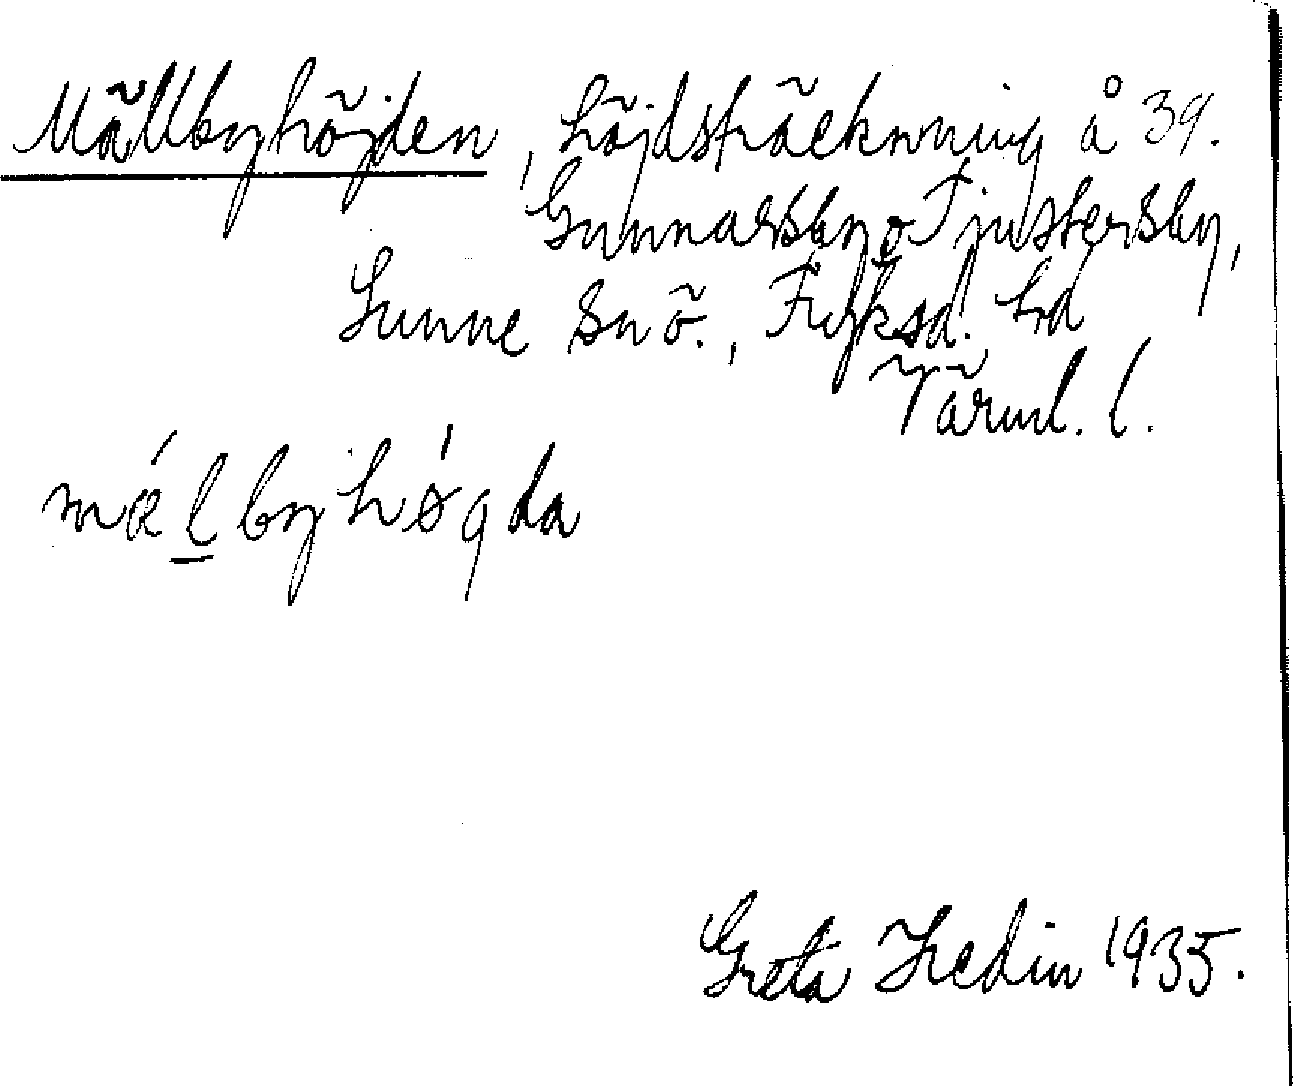 Mällbyhöjden, höjdsträckning å 39.
Gunnarsby o Tjustersby,
Sunne snö., Fryksd. hd
Värml. l.
málbyhǿgda
Greta Hedin 1935.